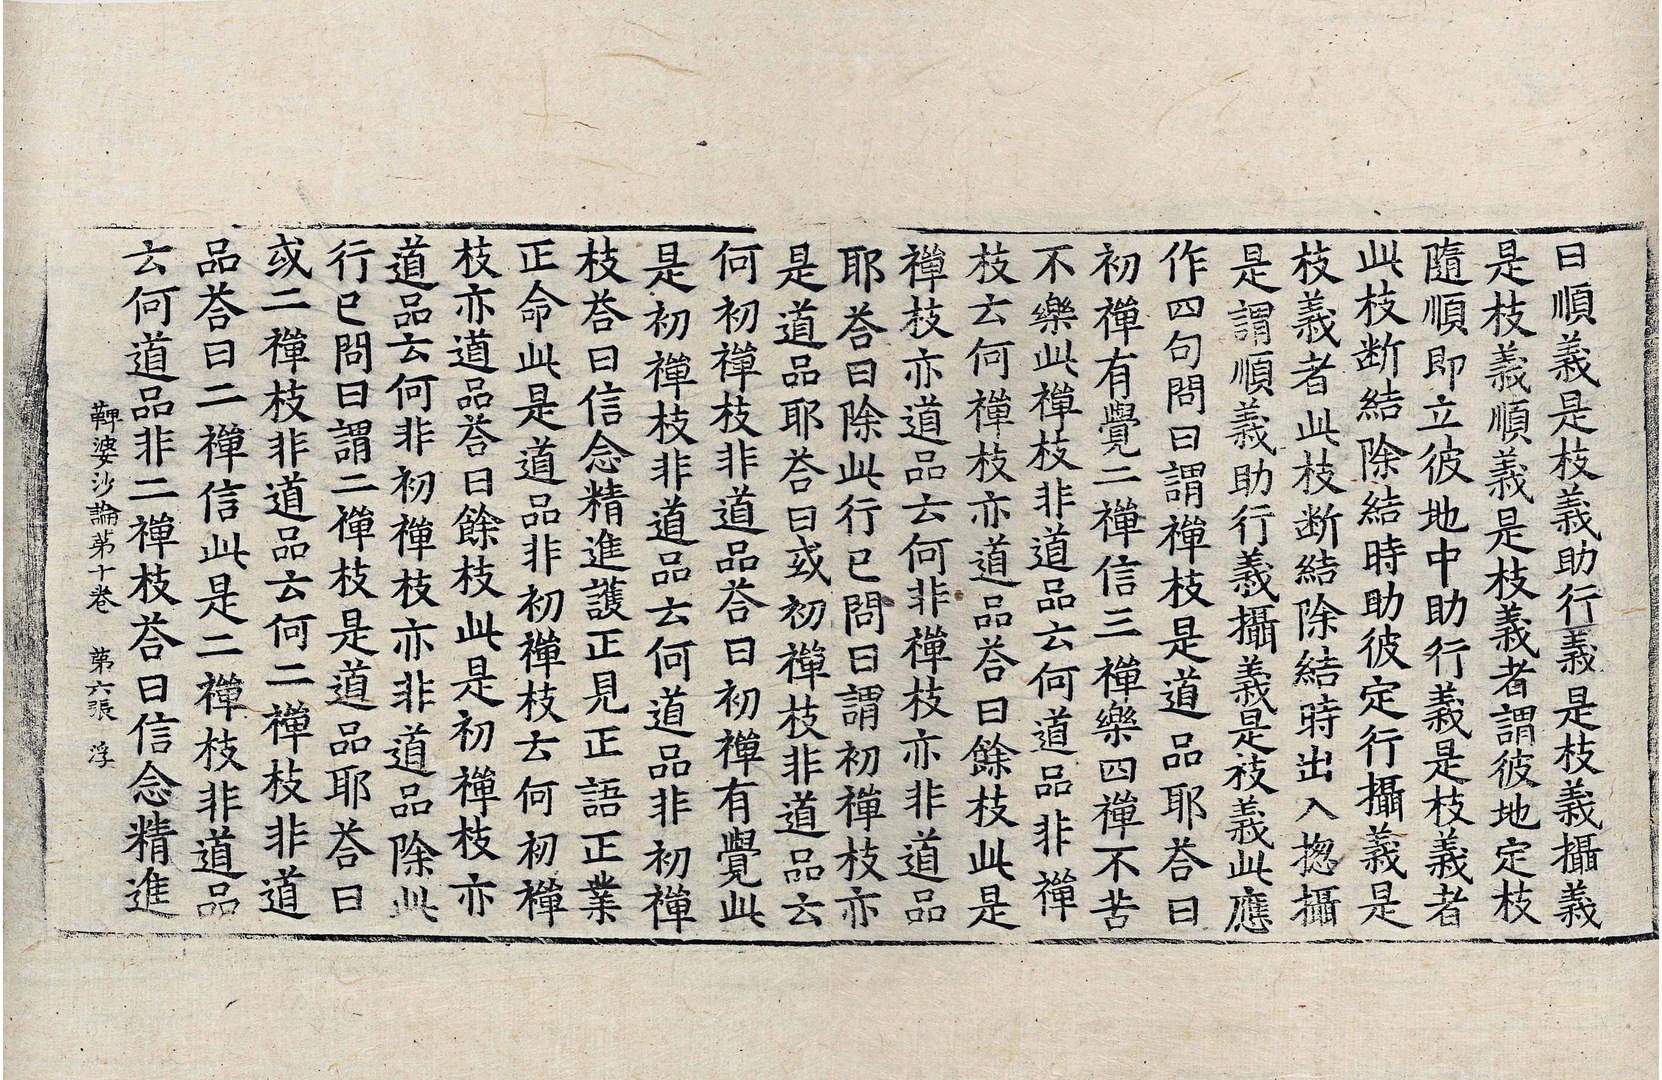 曰順義是枝義助行義是枝義攝義
是枝義順義是枝義者謂彼地定枝
隨順即立彼地中助行義是枝義者
此枝断結除結時助彼定行攝義是
枝義者此枝断結除結時出入揔攝
是謂順義助行義攝義是枝義此應
作四句問曰謂禪枝是道品耶荅曰
初禪有覺二禪信三禪樂四禪不苦
不樂此禪枝非道品云何道品非禪
枝云何禪枝亦道品荅曰餘枝此是
禪枝亦道品云何非禪枝亦非道品
耶荅曰除此行已問曰謂初禪枝亦
是道品耶荅曰或初禪枝非道品云
何初禪枝非道品荅曰初禪有覺此
是初禪枝非道品云何道品非初禪
枝荅曰信念精進護正見正語正業
正命此是道品非初禪枝云何初禪
枝亦道品荅曰餘枝此是初禪枝亦
道品云何非初禪枝亦非道品除此
行已問曰謂二禪枝是道品耶荅曰
或二禪枝非道品云何二禪枝非道
品荅曰二禪信此是二禪枝非道品
云何道品非二禪枝荅曰信念精進
鞞婆沙論第十卷 第六張 浮